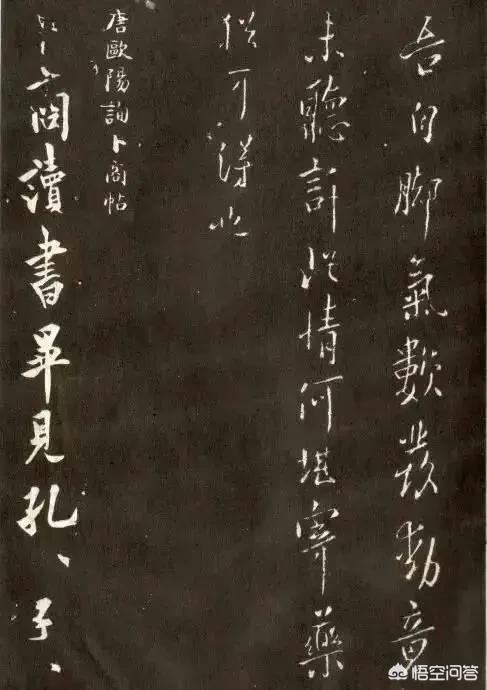 吾自腳氣數發動竟
未聽許此情何堪寄藥
猶可得也
唐歐陽詢卜商帖
卜商讀書畢見孔、子、
悟空问答